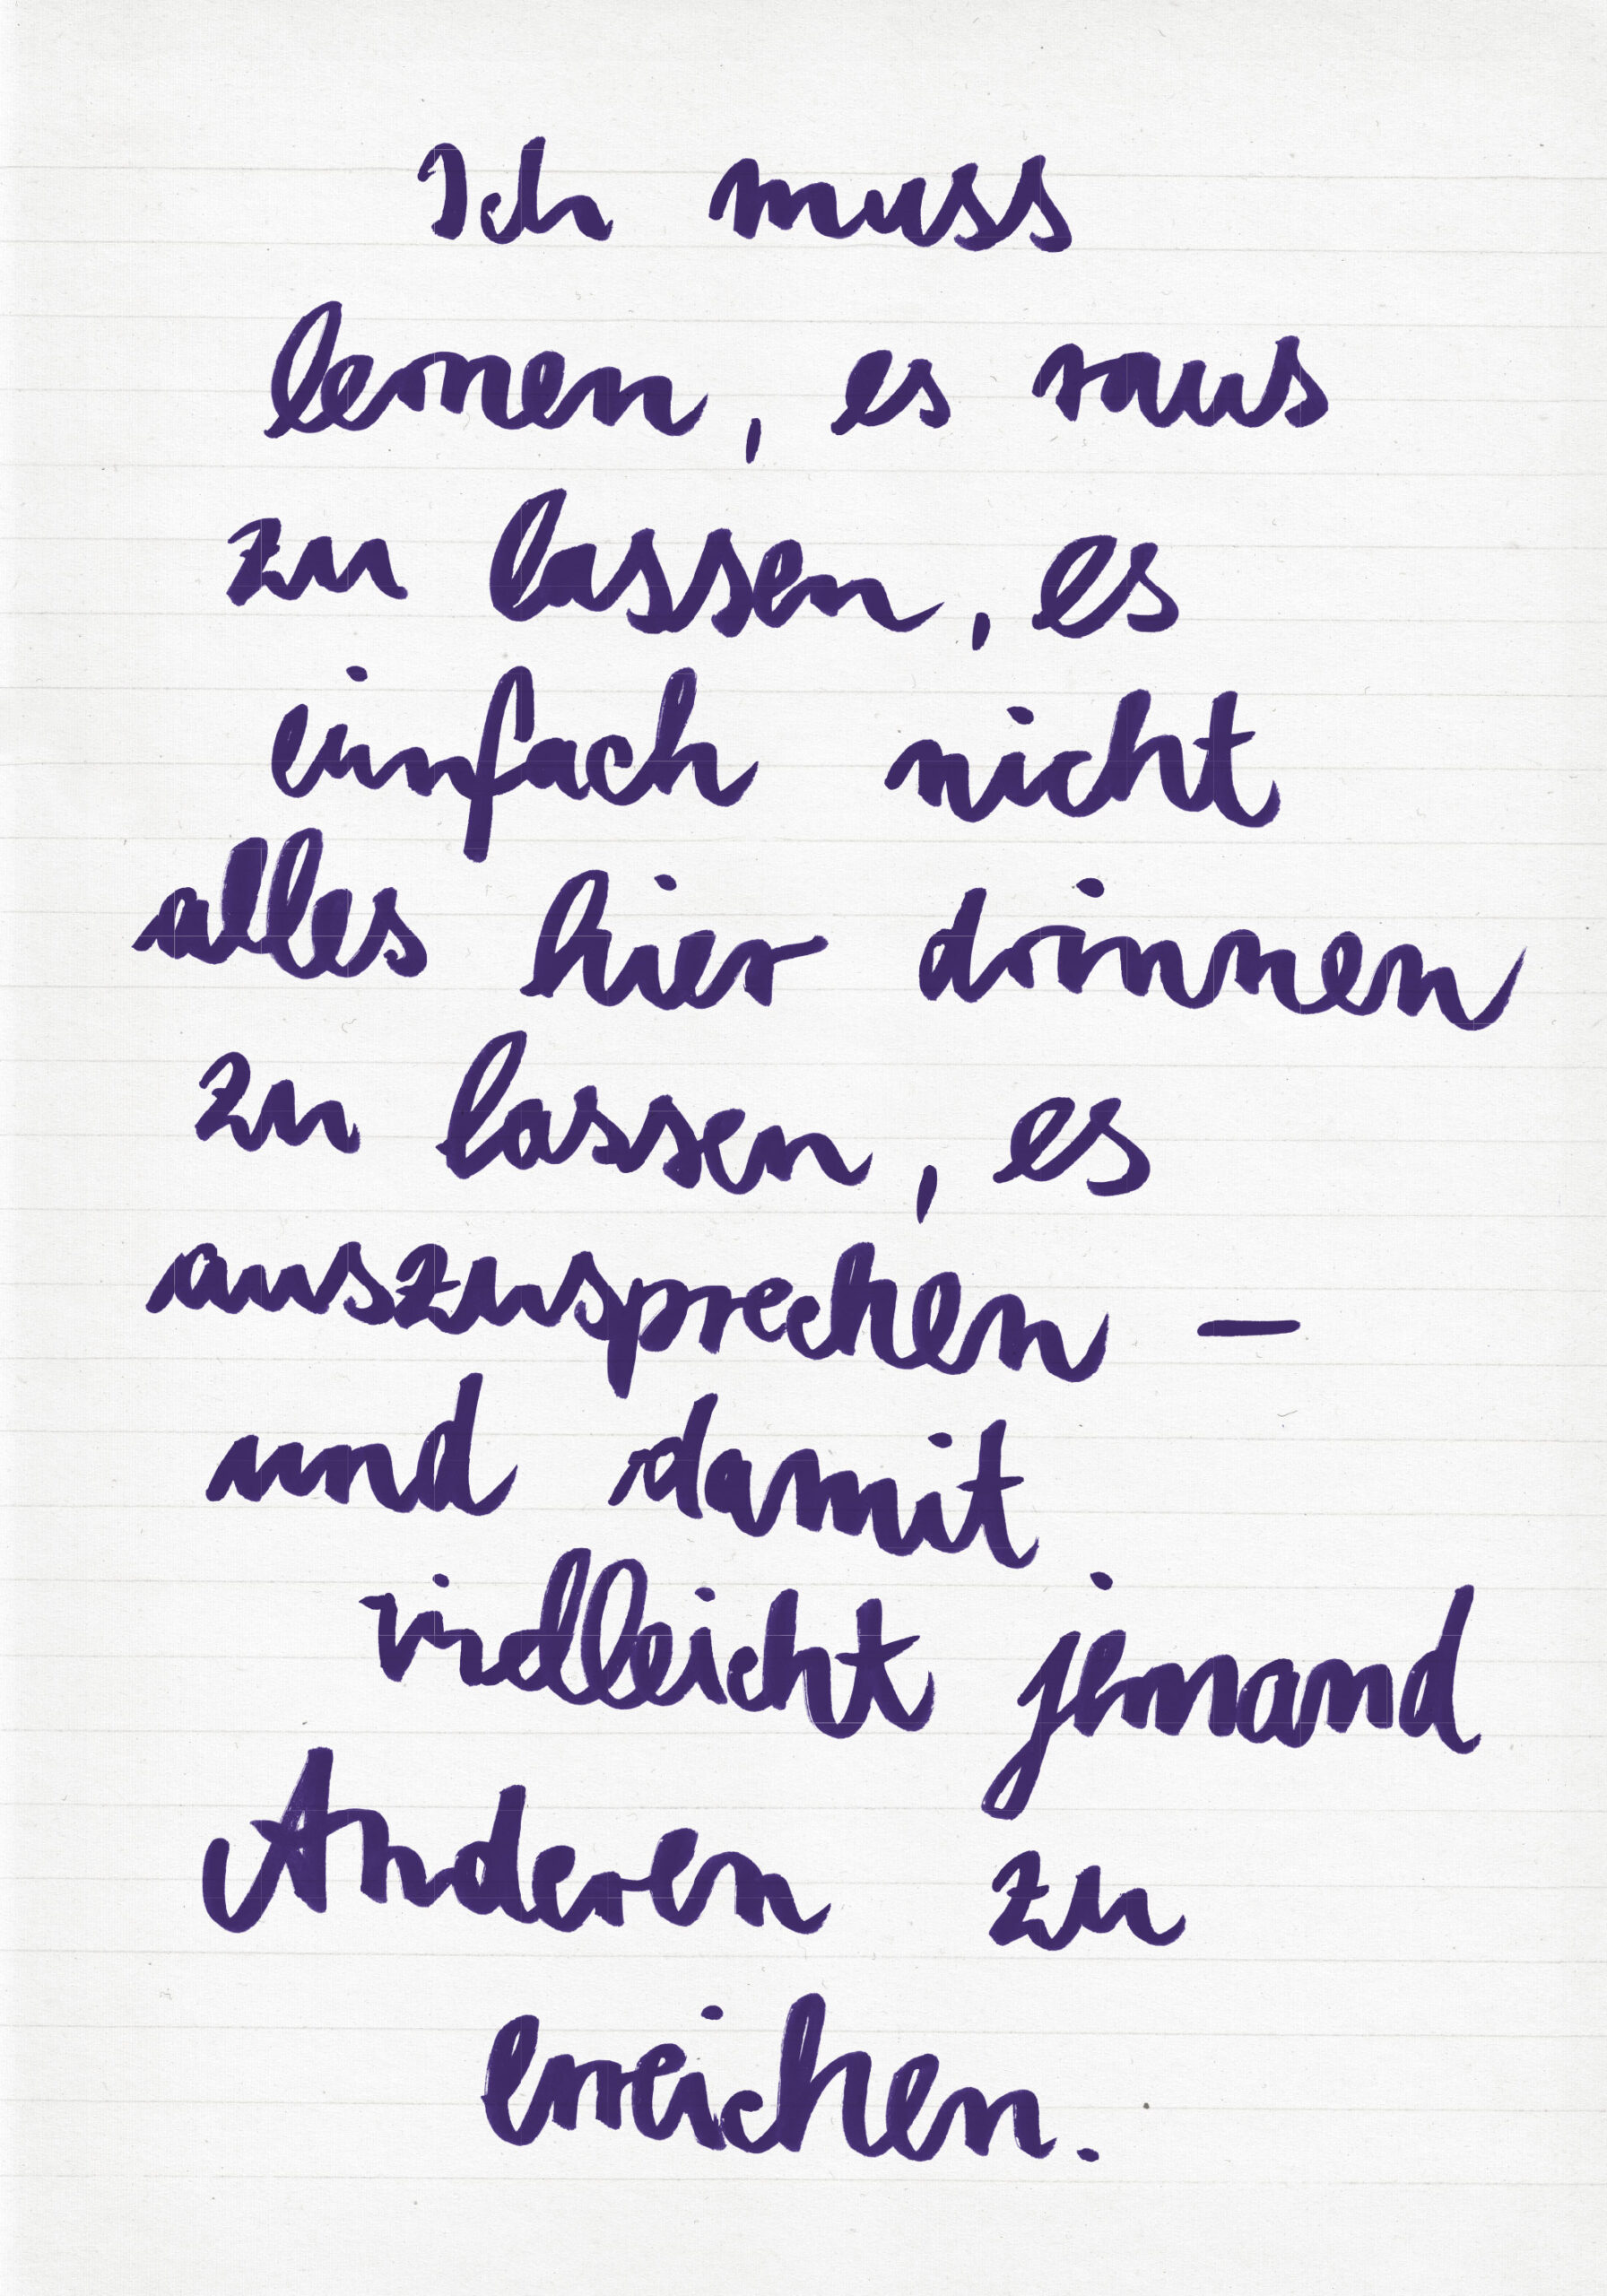 Ich muss
lernen, es raus
zu lassen, es
einfach nicht
alles hier drinnen
zu lassen, es
auszusprechen –
und damit
vielleicht jemand
Anderen zu
erreichen.